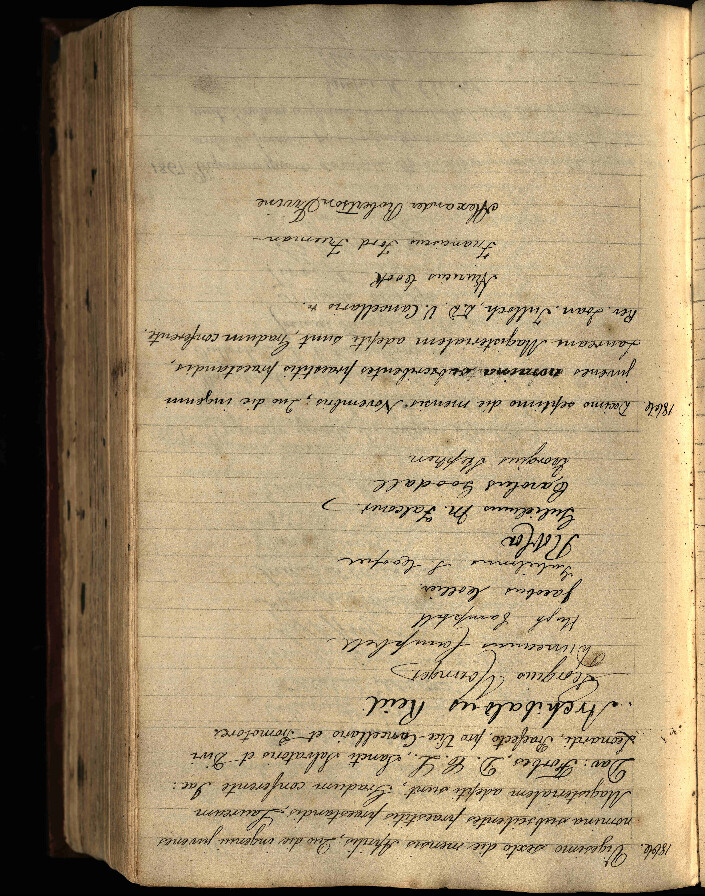 1866. Vigesimo sexto die mensis Aprilis, Quo die ingenui juvenes
nomina subscribentes praestitis praestandis, Lauream
Magisterialem adepti sunt, Gradum conferente Jac:
Dav: Forbes D. C. L., Sancti Salvatoris et Divi
Leonardi Praefecto pro Vice-Cancellario et Promotore.
Archibaldus Reid.
Georgius Younger
Duncanus Campbell
Hugh Campbell
Jacobus Collier
Gulielmus S. Cooper
Gulielmus M. Falconer
Carolus Goodall
Georgius Stephen
1866. Decimo septimo die mensis Novembris, Quo die ingenui
juvenes nomina subscribentes praestitis praestandis,
Lauream Magisterialem adepti sunt, Gradum conferente
Rev Joan. Tulloch, D. V. Cancellario
Cook
Franciscus Ford Freeman
Alexander Robertson Irvine